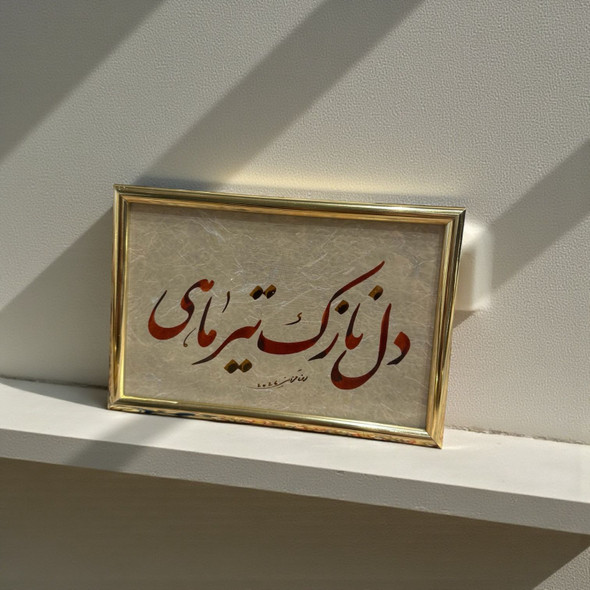 دل نازک تیر ماهی